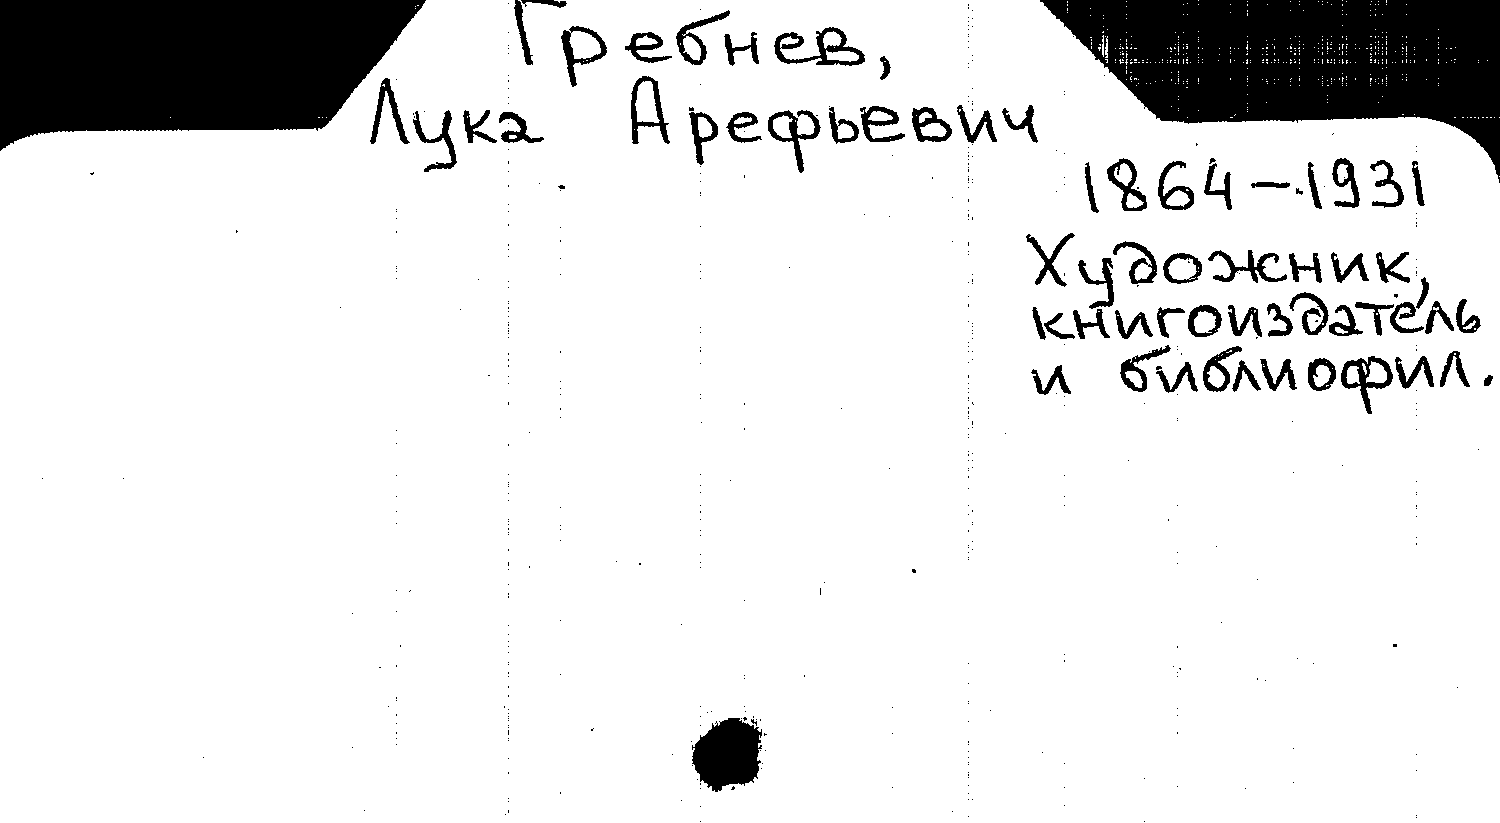 Гребнев,
Лука Арефьевич
1864-1931
Художник,
книгоиздатель
и библиофил.